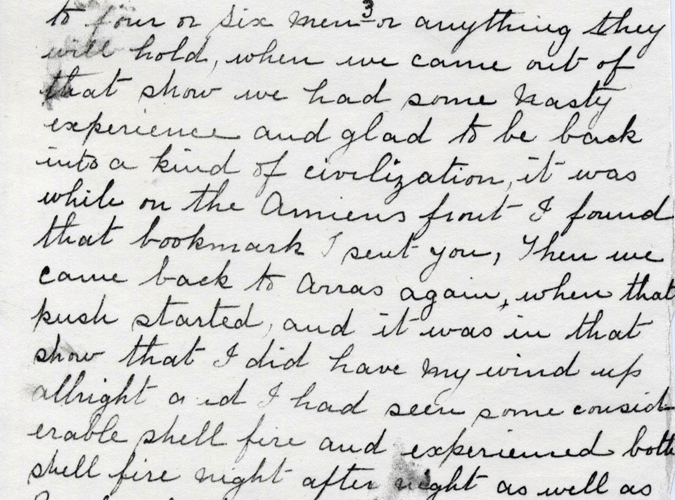 3
to four or six men or anything they
will hold, when we came out of
that show we had some nasty
experience and glad to be back
into a kind of civilization, it was
while on the Amiens front I found
that bookmark I sent you, Then we
came back to Arras again, when that
push started, and it was in that
show that I did have my wind up
allright a d I had seen some consid
erable shell fire and experienced both
shell fire night after night as well as